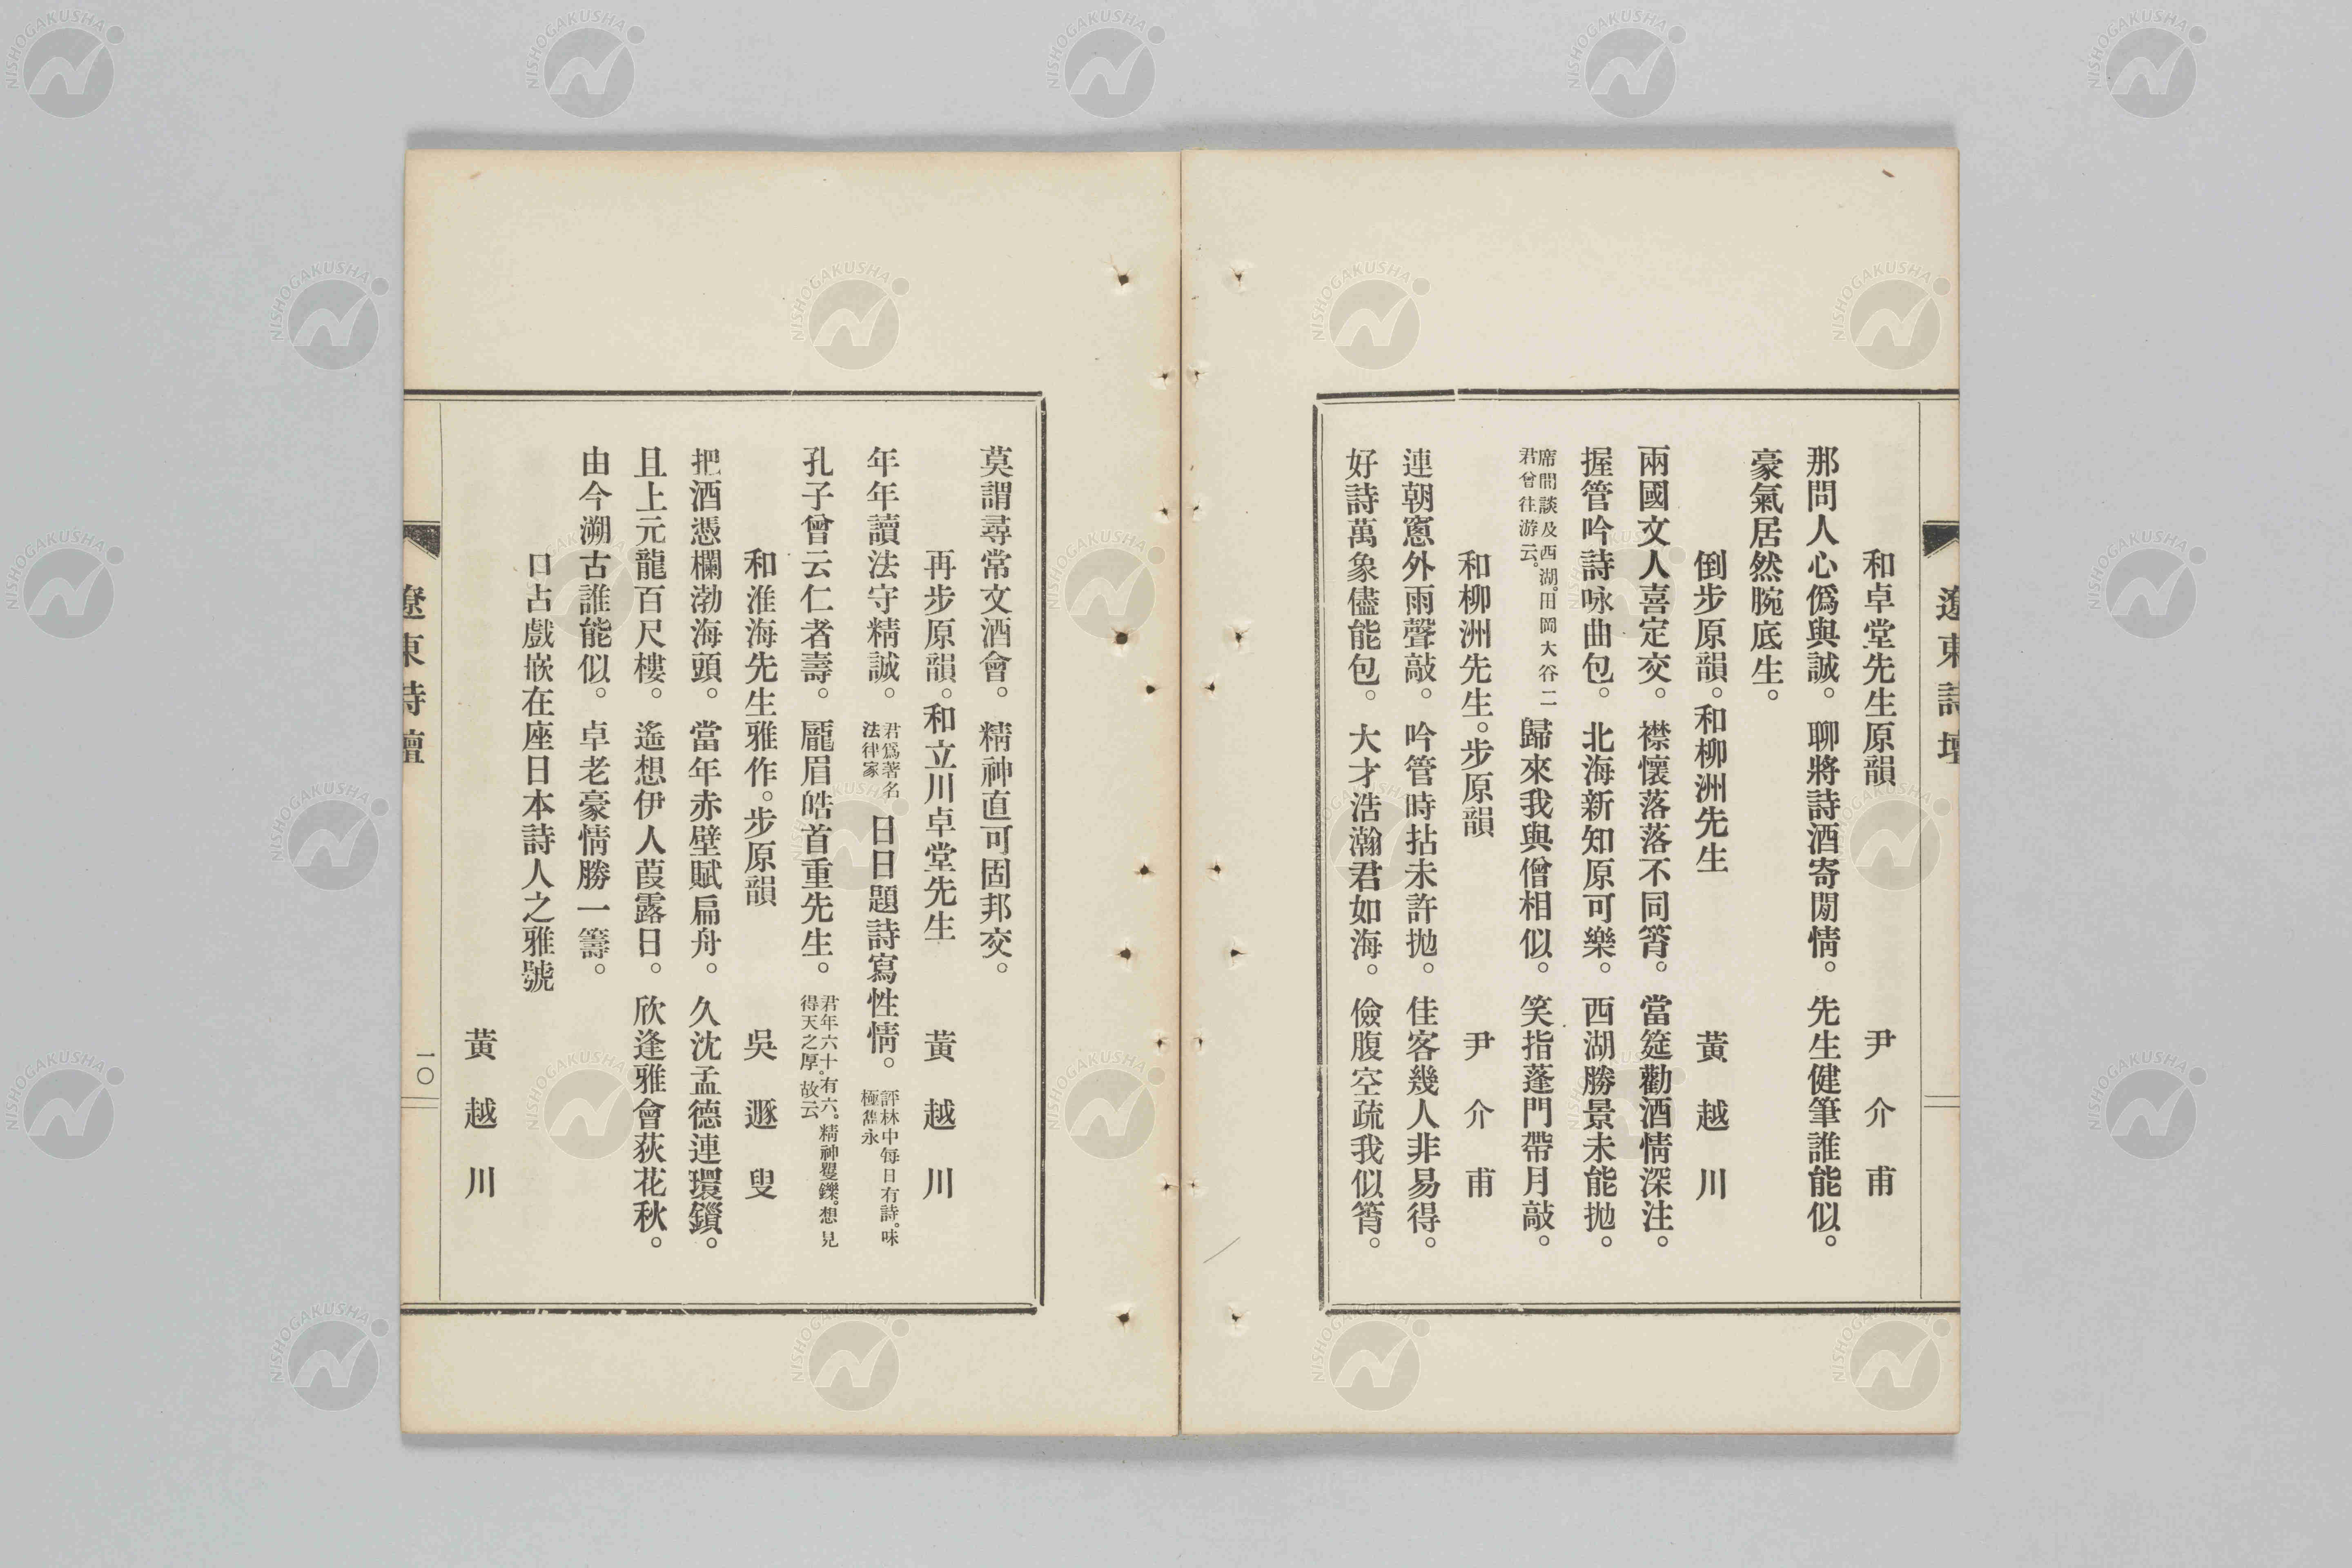 遼東詩壇
和卓堂先生原韻　尹介甫
那問人心僞與誠。聊將詩酒寄閒情。先生健筆誰能似。
豪氣居然腕底生。
倒步原韻。和柳洲先生　黃越川
兩國文人喜定交。襟懷落落不同筲。當筵勸酒情深注。
握管吟詩咏曲包。北海新知原可樂。西湖勝景未能拋。
席間談及西湖。田岡大谷二
君曾往游云。
歸來我與僧相似。笑指蓬門帶月敲。
和柳洲先生。步原韻　尹介甫
連朝窻外雨聲敲。吟管時拈未許拋。佳客幾人非易得。
好詩萬象儘能包。大才浩瀚君如海。儉腹空疏我似筲。
莫謂尋常文酒會。精神直可固邦交。
再步原韻。和立川卓堂先生　黃越川
年年讀法守精誠。
君爲著名
法律家
日日題詩寫性情。
評林中每日有詩。味
極雋永
孔子曾云仁者壽。龐眉皓首重先生。
君年六十有六。精神矍鑠。想見
得天之厚。故云
和淮海先生雅作。步原韻　吳遯叟
把酒憑欄渤海頭。當年赤壁賦扁舟。久沈孟德連環鎖。
且上元龍百尺樓。遙想伊人葭露日。欣逢雅會荻花秋。
由今溯古誰能似。卓老豪情勝一籌。
口占戲嵌在座日本詩人之雅號
黃越川
遼東詩壇
一〇
NISHOGAKUSHA